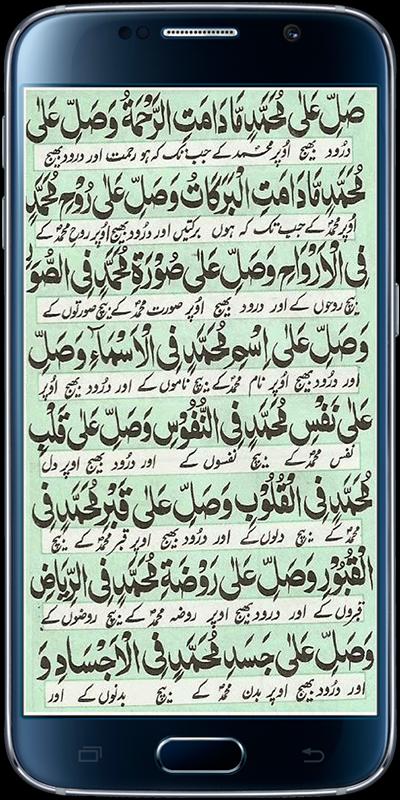 صَلِّ عَلٰى مُحَمَّدٍ مَّا دَامَتِ الرَّحْمَةُ وَصَلِّ عَلٰى
درُود بھیج اُوپر محمد کے جب تک کہ ہو رحمت اور درود بھیج
مُحَمَّدٍ مَّا دَامَتِ الْبَرَكَاتُ وَصَلِّ عَلٰى رُوْحِ مُحَمَّدٍ
اُوپر محمدؐ کے جب تک کہ ہوں برکتیں اور درُود بھیج اُوپر روح محمدؐ کے
فِى الْاَرْوَاحِ وَصَلِّ عَلٰى صُوْرَةِ مُحَمَّدٍ فِى الصُّوَرِ
بیچ روحوں کے اور درود بھیج اُوپر صورت محمدؐ کے بیچ صورتوں کے
وَصَلِّ عَلٰى اِسْمِ مُحَمَّدٍ فِى الْاَسْمَآءِ وَصَلِّ
اور درُود بھیج اُوپر نام محمدؐ کے بیچ ناموں کے اور درُود بھیج اُوپر
عَلٰى نَفْسِ مُحَمَّدٍ فِى النُّفُوْسِ وَصَلِّ عَلٰى قَلْبِ
نفس محمدؐ کے بیچ نفسوں کے اور درُود بھیج اوپر دل
مُحَمَّدٍ فِى الْقُلُوْبِ وَصَلِّ عَلٰى قَبْرِ مُحَمَّدٍ فِى
محمدؐ کے بیچ دلوں کے اور درُود بھیج اوپر قبر محمدؐ کے بیچ
الْقُبُوْرِ وَصَلِّ عَلٰى رَوْضَةِ مُحَمَّدٍ فِى الرِّيَاضِ
قبروں کے اور درود بھیج اوپر روضہ محمدؐ کے بیچ روضوں کے
وَصَلِّ عَلٰى جَسَدِ مُحَمَّدٍ فِى الْاَجْسَادِ وَ
اور درُود بھیج اوپر بدن محمدؐ کے بیچ بدنوں کے اور